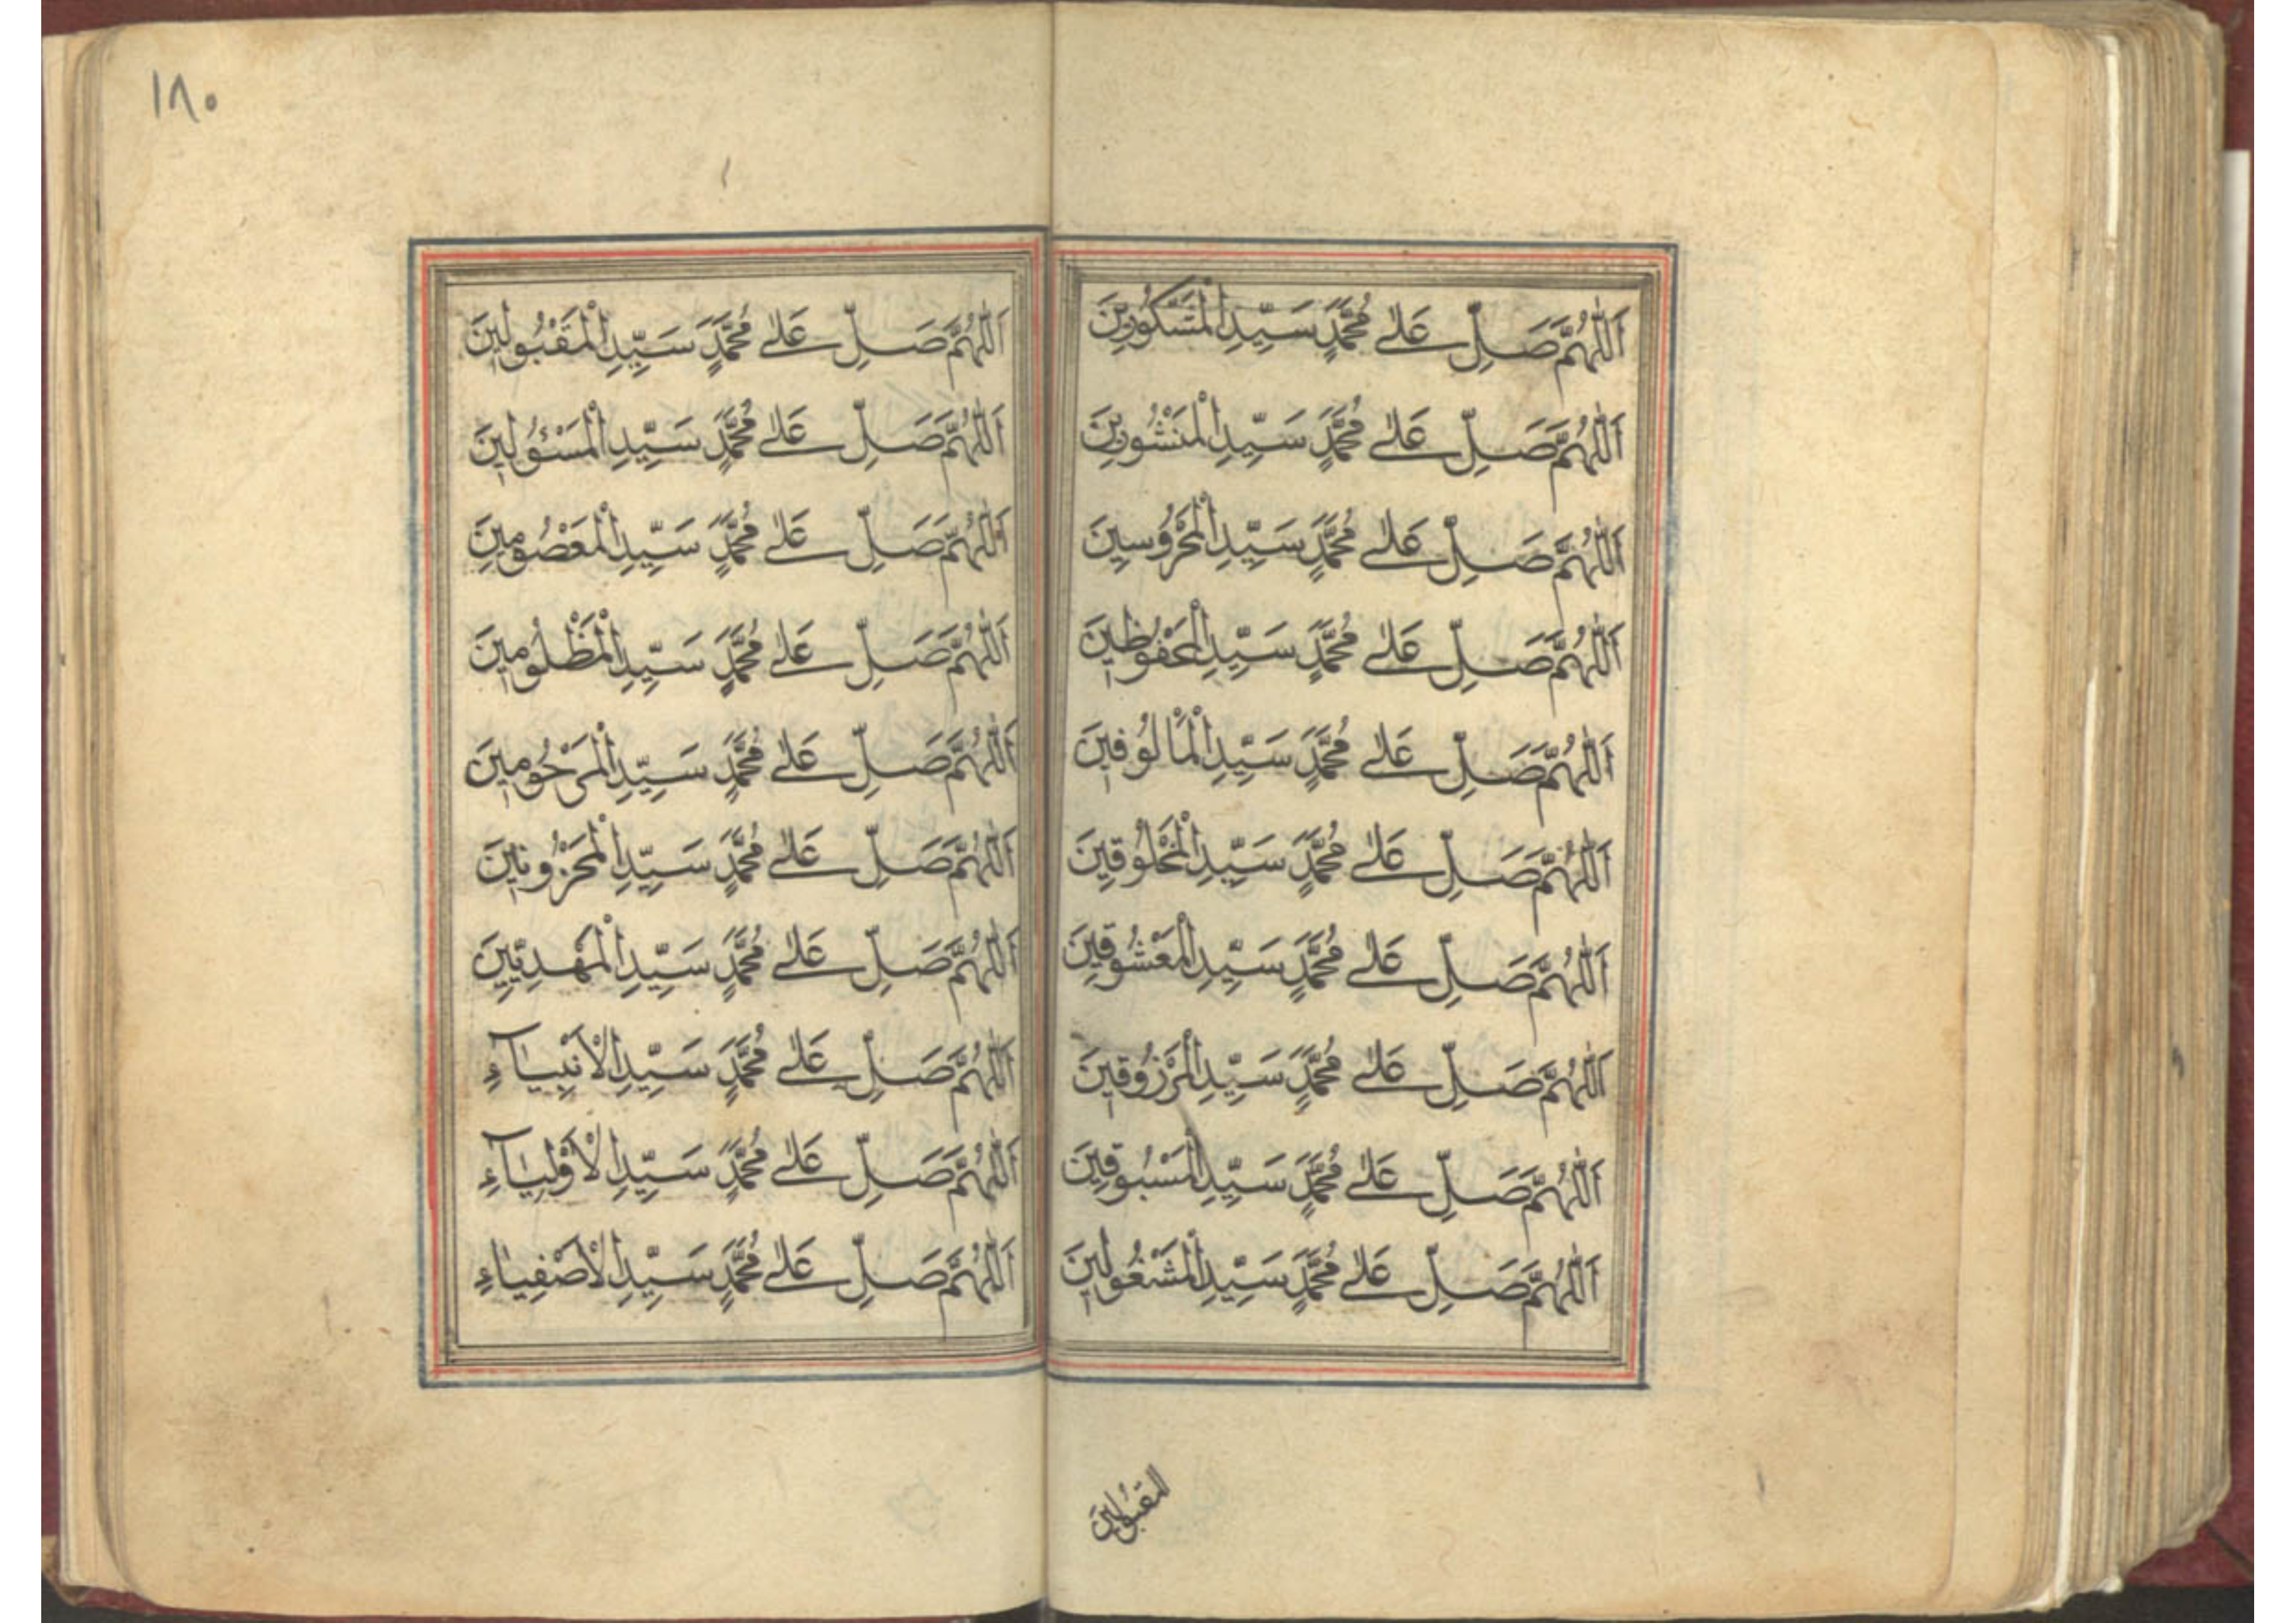 اَللّٰهُمَّ صَلِّ عَلٰى مُحَمَّدٍ سَيِّدِ الْمَشْكُورِينَ
اَللّٰهُمَّ صَلِّ عَلٰى مُحَمَّدٍ سَيِّدِ الْمَنْشُورِينَ
اَللّٰهُمَّ صَلِّ عَلٰى مُحَمَّدٍ سَيِّدِ الْمَحْرُوسِينَ
اَللّٰهُمَّ صَلِّ عَلٰى مُحَمَّدٍ سَيِّدِ الْمَحْفُوظِينَ
اَللّٰهُمَّ صَلِّ عَلٰى مُحَمَّدٍ سَيِّدِ الْمَأْلُوفِينَ
اَللّٰهُمَّ صَلِّ عَلٰى مُحَمَّدٍ سَيِّدِ الْمَخْلُوقِينَ
اَللّٰهُمَّ صَلِّ عَلٰى مُحَمَّدٍ سَيِّدِ الْمَعْشُوقِينَ
اَللّٰهُمَّ صَلِّ عَلٰى مُحَمَّدٍ سَيِّدِ الْمَرْزُوقِينَ
اَللّٰهُمَّ صَلِّ عَلٰى مُحَمَّدٍ سَيِّدِ الْمَسْبُوقِينَ
اَللّٰهُمَّ صَلِّ عَلٰى مُحَمَّدٍ سَيِّدِ الْمَشْغُولِينَ
المقبُولينَ
١٨٠
اَللّٰهُمَّ صَلِّ عَلٰى مُحَمَّدٍ سَيِّدِ الْمَقْبُولِينَ
اَللّٰهُمَّ صَلِّ عَلٰى مُحَمَّدٍ سَيِّدِ الْمَسْئُولِينَ
اَللّٰهُمَّ صَلِّ عَلٰى مُحَمَّدٍ سَيِّدِ الْمَعْصُومِينَ
اَللّٰهُمَّ صَلِّ عَلٰى مُحَمَّدٍ سَيِّدِ الْمَظْلُومِينَ
اَللّٰهُمَّ صَلِّ عَلٰى مُحَمَّدٍ سَيِّدِ الْمَرْحُومِينَ
اَللّٰهُمَّ صَلِّ عَلٰى مُحَمَّدٍ سَيِّدِ الْمَحْزُونِينَ
اَللّٰهُمَّ صَلِّ عَلٰى مُحَمَّدٍ سَيِّدِ الْمَهْدِيِّينَ
اَللّٰهُمَّ صَلِّ عَلٰى مُحَمَّدٍ سَيِّدِ الْاَنْبِيَاءِ
اَللّٰهُمَّ صَلِّ عَلٰى مُحَمَّدٍ سَيِّدِ الْاَوْلِيَاءِ
اَللّٰهُمَّ صَلِّ عَلٰى مُحَمَّدٍ سَيِّدِ الْاَصْفِيَاءِ